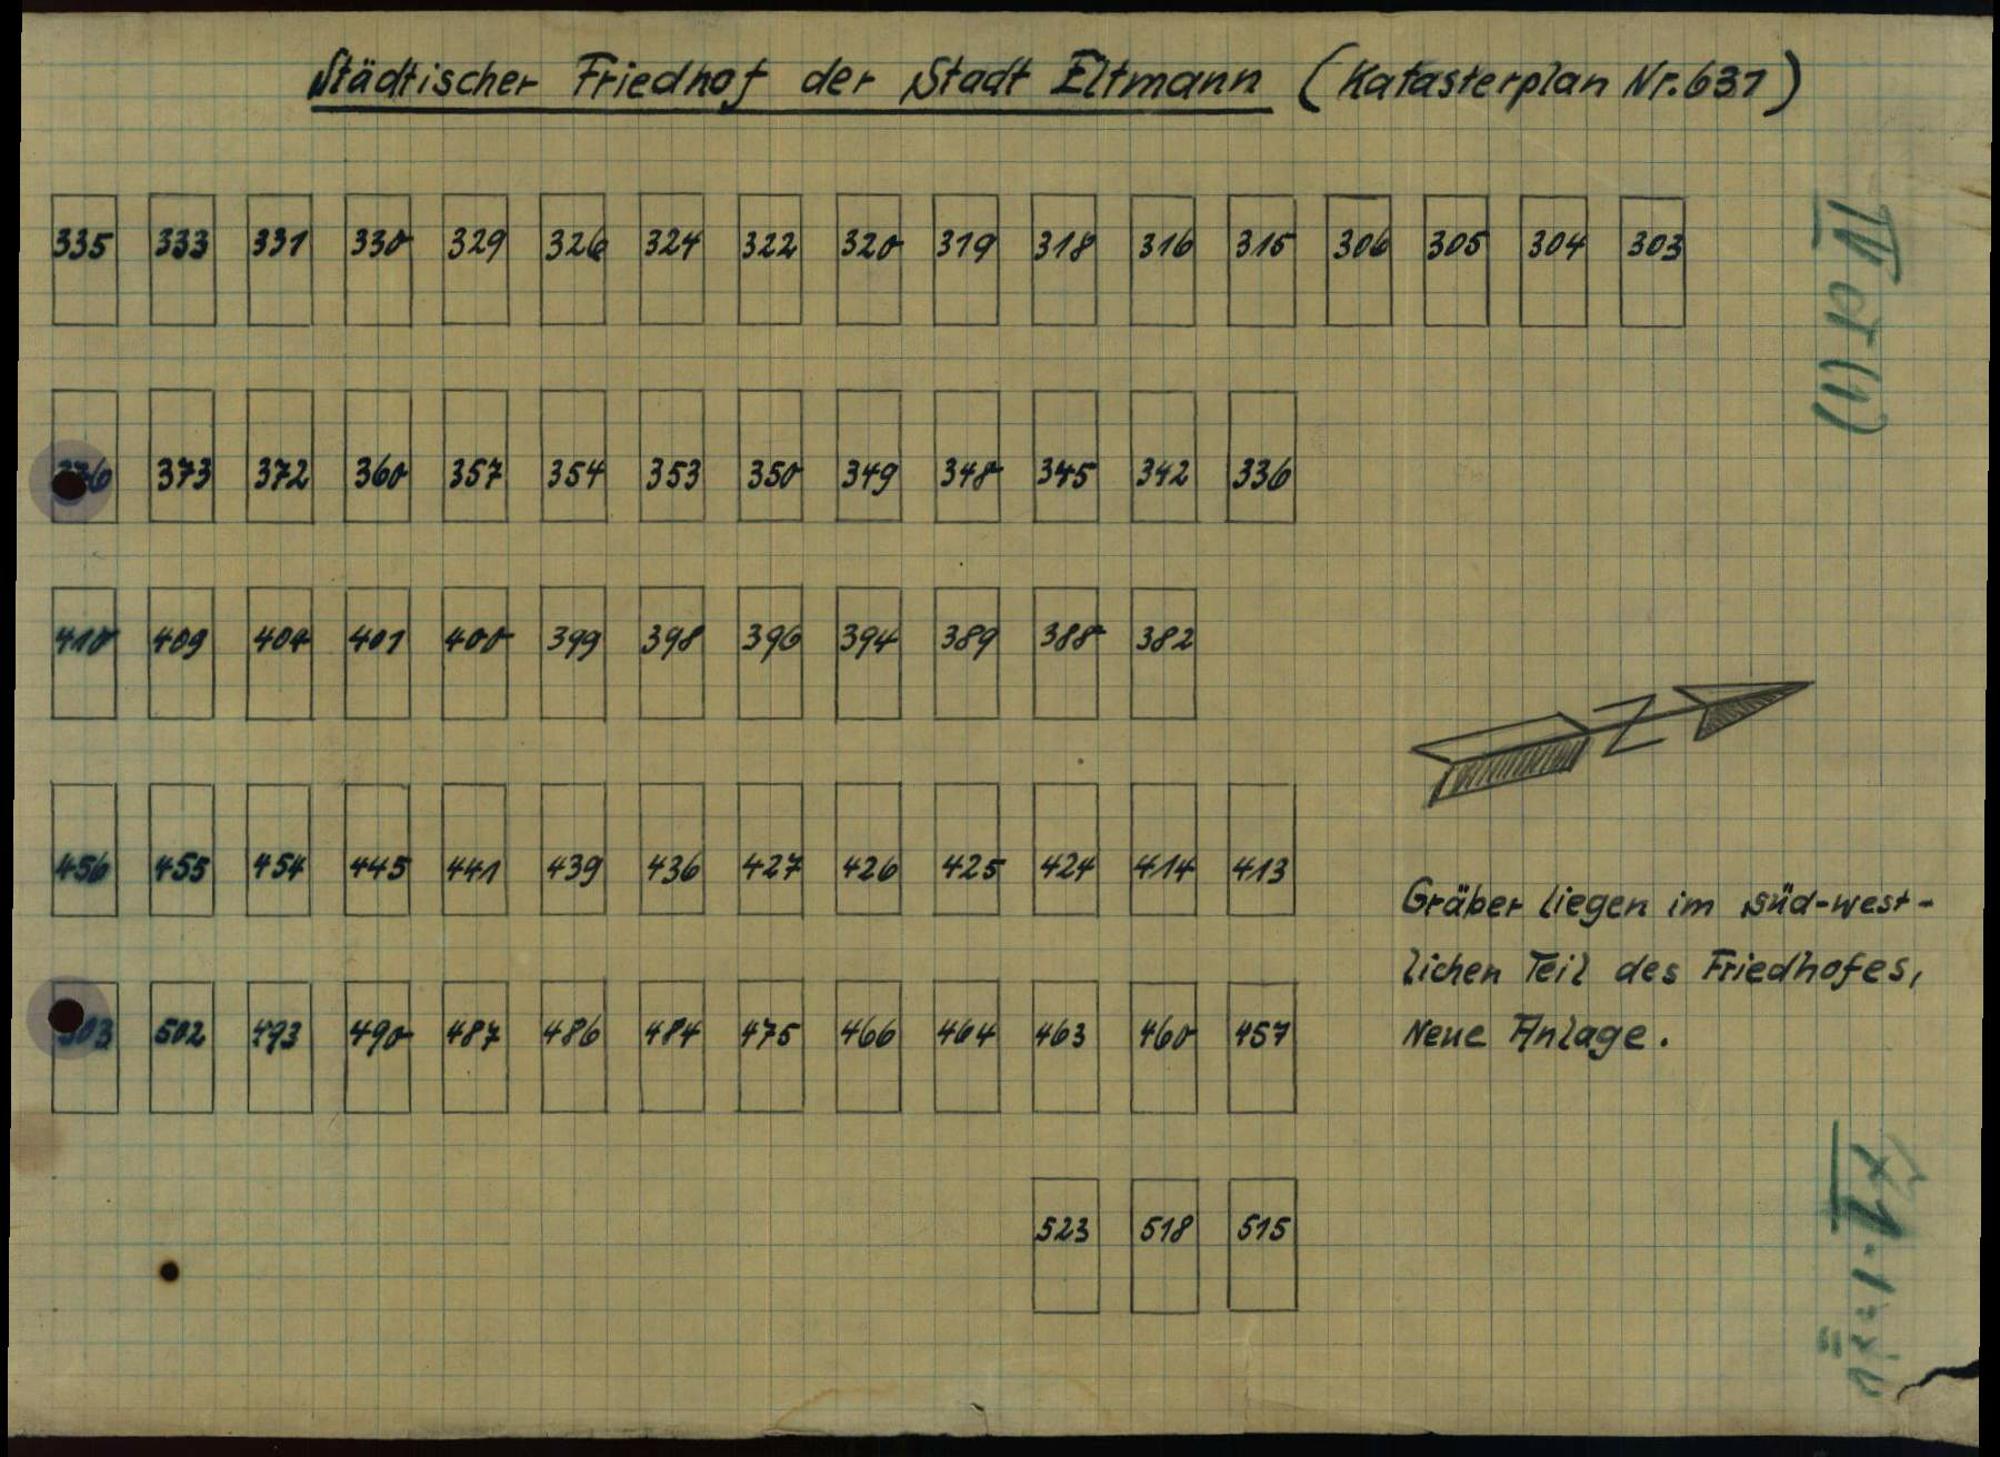 Städtischer Friedhof der Stadt Eltmann (Katasterplan Nr. 631)
335 333 331 330 329 326 324 322 320 319 318 316 315 306 305 304 303
373 372 360 357 354 353 350 349 348 345 342 336
410 409 404 401 400 399 398 396 394 389 388 382
456 455 454 445 441 439 436 427 426 425 424 414 413
503 502 493 490 487 486 484 475 466 464 463 460 457
523 518 515
N
Gräber liegen im süd-west-
lichen Teil des Friedhofes,
Neue Anlage.